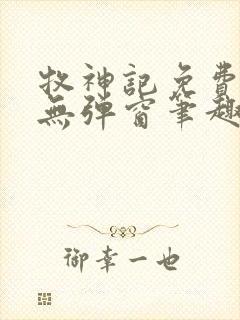 牧神記免費
無彈窗筆趣
御幸一也